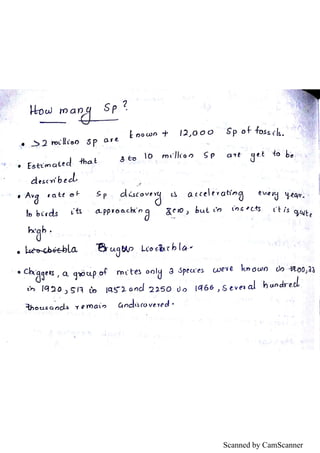 How many Sp?
• >2 million sp are known + 12,000 Sp of fossils.
• Estimated that 3 to 10 million sp are yet to be
described.
• Avg rate of Sp discovery is accelerating every year.
In birds its approaching zero, but in insects it is quite
high.
•
• Chiggers, a group of mites only 3 species were known in 33
in 1920, 517 in 1952 and 2250 in 1966, Several hundred
thousands remain undiscovered.
Scanned by CamScanner